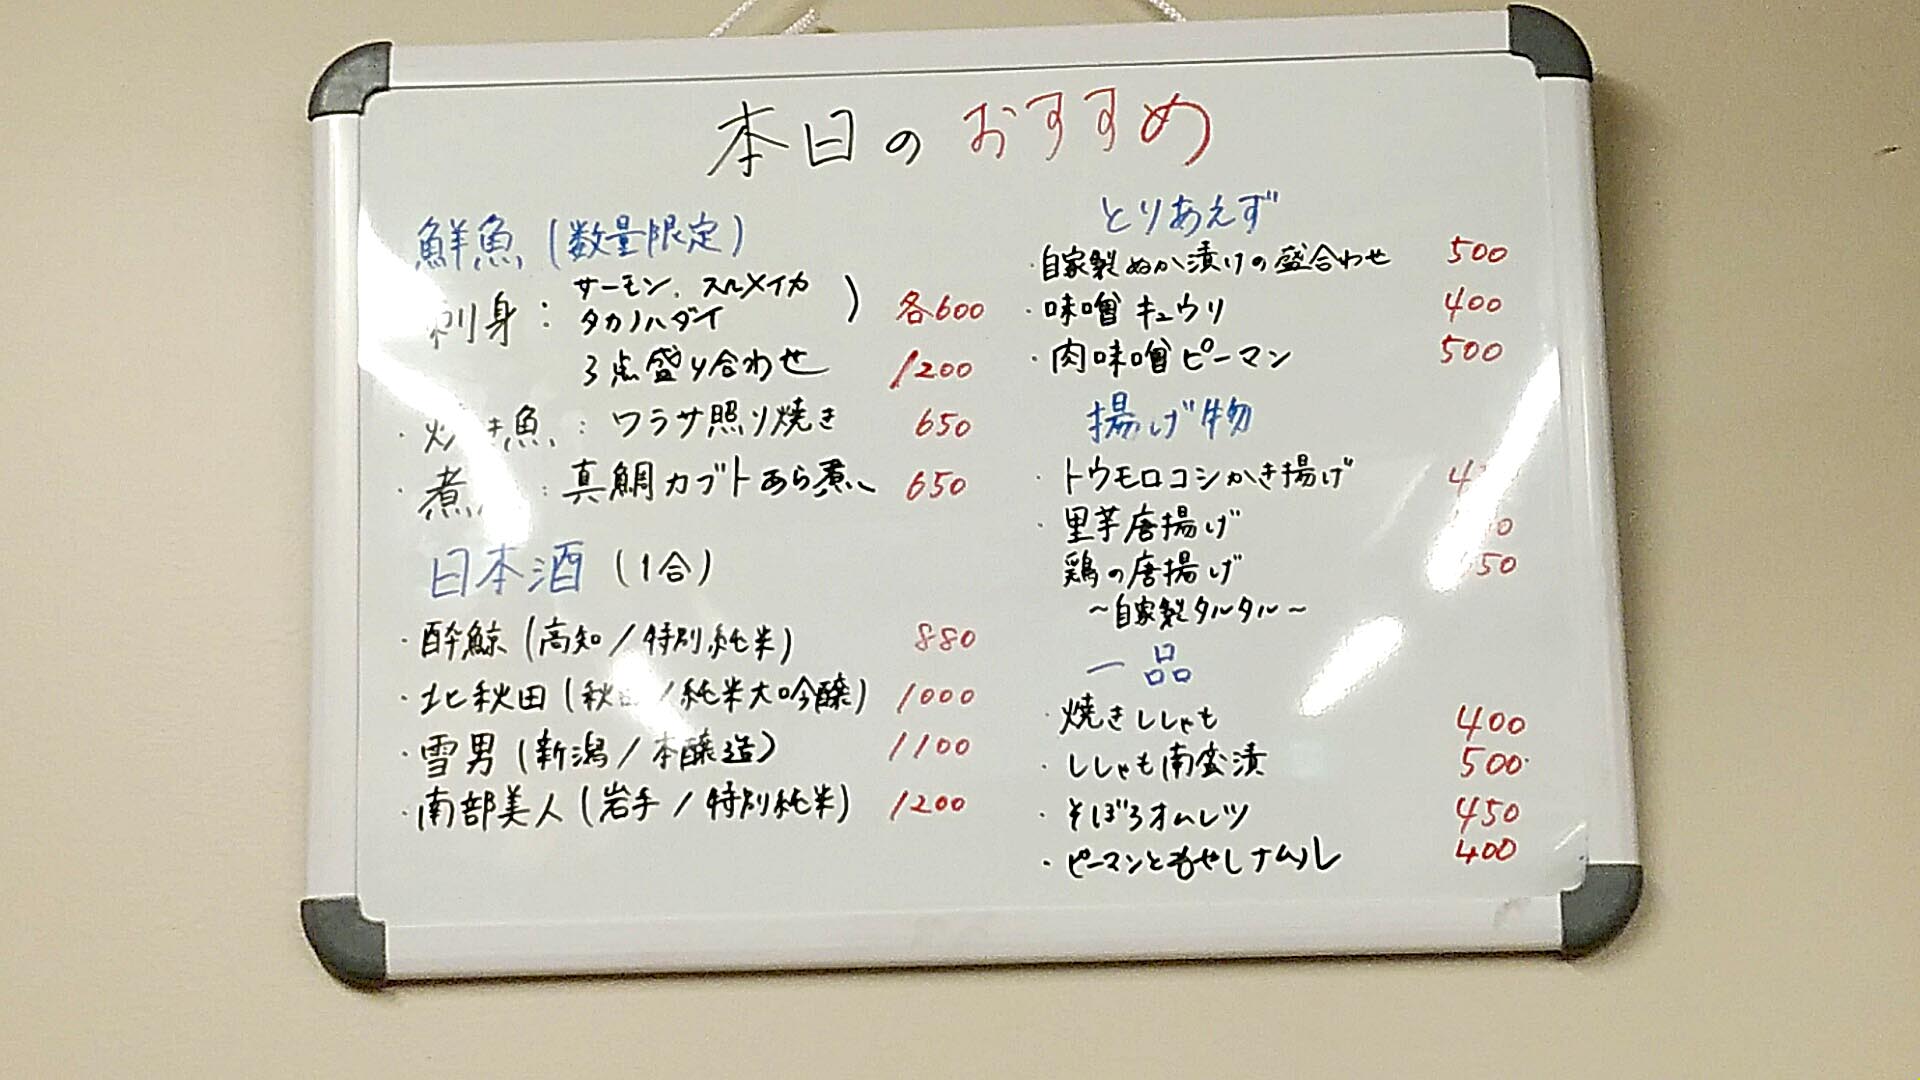 本日のおすすめ
鮮魚(数量限定)
刺身: サーモン、スルメイカ
タカノハダイ) 各600
3点盛り合わせ 1200
・焼き魚: ワラサ照り焼き 650
・煮 : 真鯛カブトあら煮 650
日本酒(1合)
・酔鯨(高知/特別純米) 880
・北秋田(秋田/純米大吟醸) 1000
・雪男(新潟/本醸造) 1100
・南部美人(岩手/特別純米) 1200
とりあえず
・自家製ぬか漬けの盛合わせ 500
・味噌キュウリ 400
・肉味噌ピーマン 500
揚げ物
・トウモロコシかき揚げ
・里芋唐揚げ
鶏の唐揚げ
~自家製タルタル~
一品
・焼きししゃも 400
・ししゃも南蛮漬 500
・そぼろオムレツ 450
・ピーマンともやしナムル 400